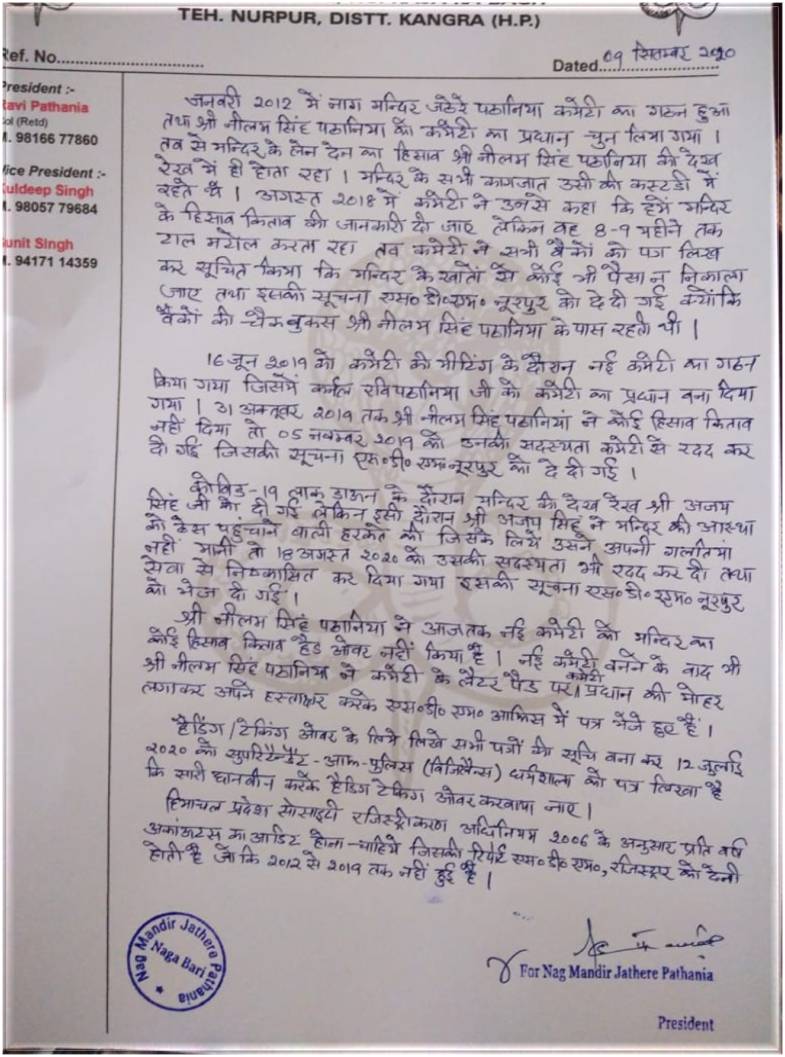 TEH. NURPUR, DISTT. KANGRA (H.P.)
Ref. No.................................
Dated 09 सितम्बर 2020
President :-
Ravi Pathania
Col (Retd)
M. 98166 77860
Vice President :-
Kuldeep Singh
M. 98057 79684
Sunit Singh
M. 94171 14359
जनवरी 2012 में नाग मन्दिर जठेरे पठानिया कमेटी का गठन हुआ
तथा श्री नीलम सिंह पठानिया को कमेटी का प्रधान चुन लिया गया।
तब से मन्दिर के लेन देन का हिसाब श्री नीलम सिंह पठानिया की देख
रेख में ही होता रहा। मन्दिर के सभी कागजात उसी की कस्टडी में
रहते थे। अगस्त 2018 में कमेटी ने उनसे कहा कि हमें मन्दिर
के हिसाब किताब की जानकारी दी जाए लेकिन वह 8-9 महीने तक
टाल मटोल करता रहा तब कमेटी ने सभी बैंकों को पत्र लिख
कर सूचित किया कि मन्दिर के खातों से कोई भी पैसा न निकाला
जाए तथा इसकी सूचना एस॰डी॰एम॰ नूरपुर को दे दी गई क्योंकि
बैंकों की चैक बुकस श्री नीलम सिंह पठानिया के पास रहती थी।
16 जून 2019 को कमेटी की मीटिंग के दौरान नई कमेटी का गठन
किया गया जिसमें कर्नल रवि पठानिया जी को कमेटी का प्रधान बना दिया
गया। 31 अक्तूबर 2019 तक श्री नीलम सिंह पठानियां ने कोई हिसाब किताब
नहीं दिया तो 05 नवम्बर 2019 को उनकी सदस्यता कमेटी से रदद कर
दी गई जिसकी सूचना एस॰डी॰एम॰ नूरपुर को दे दी गई।
कोविड-19 लाक डाऊन के दौरान मन्दिर की देख रेख श्री अजय
सिंह जी को दी गई लेकिन इसी दौरान श्री अजय सिंह ने मन्दिर की आस्था
को ठेस पहुंचाने वाली हरकतें की जिसके लिये उसने अपनी गलतियां
नहीं मानी तो 18 अगस्त 2020 को उसकी सदस्यता भी रदद कर दी तथा
सेवा से निष्कासित कर दिया गया इसकी सूचना एस॰डी॰एम॰ नूरपुर
को भेज दी गई।
श्री नीलम सिंह पठानिया ने आजतक नई कमेटी को मन्दिर का
कोई हिसाब किताब हैंड ओवर नहीं किया है। नई कमेटी बनने के बाद भी
श्री नीलम सिंह पठानिया ने कमेटी के लैटर पैड पर कमेटी प्रधान की मोहर
लगाकर अपने हस्ताक्षर करके एस॰डी॰एम॰ आफिस में पत्र भेजे हुए हैं।
हैडिंग/टेकिंग ओवर के लिये लिखे सभी पत्रों की सूचि बना कर 12 जुलाई
2020 को सुपरिटेन्डेंट-आफ-पुलिस (विजिलैन्स) धर्मशाला को पत्र लिखा है
कि सारी छानबीन करके हैडिंग टेकिंग ओवर करवाया जाए।
हिमाचल प्रदेश सोसाइटी रजिस्ट्रीकरण अधिनियम 2006 के अनुसार प्रति वर्ष
अकाऊंटस का आडिट होना चाहिये जिसकी रिपोर्ट एस॰डी॰एम॰, रजिस्ट्रार को देनी
होती है जो कि 2012 से 2019 तक नहीं हुई है।
Nag Mandir Jathere Pathania
Naga Bari
For Nag Mandir Jathere Pathania
President